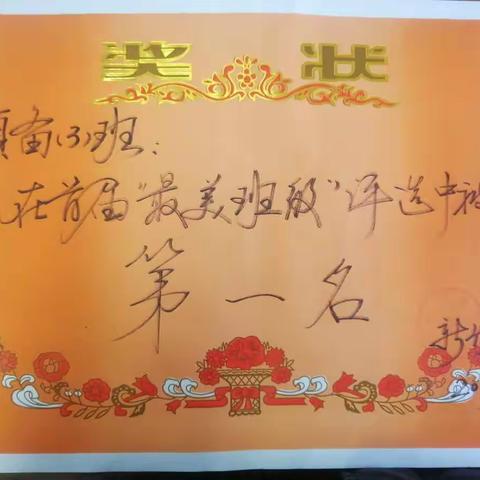 奖 状
备(3)班：
在首届“最美班级”评选中被
第一名
新